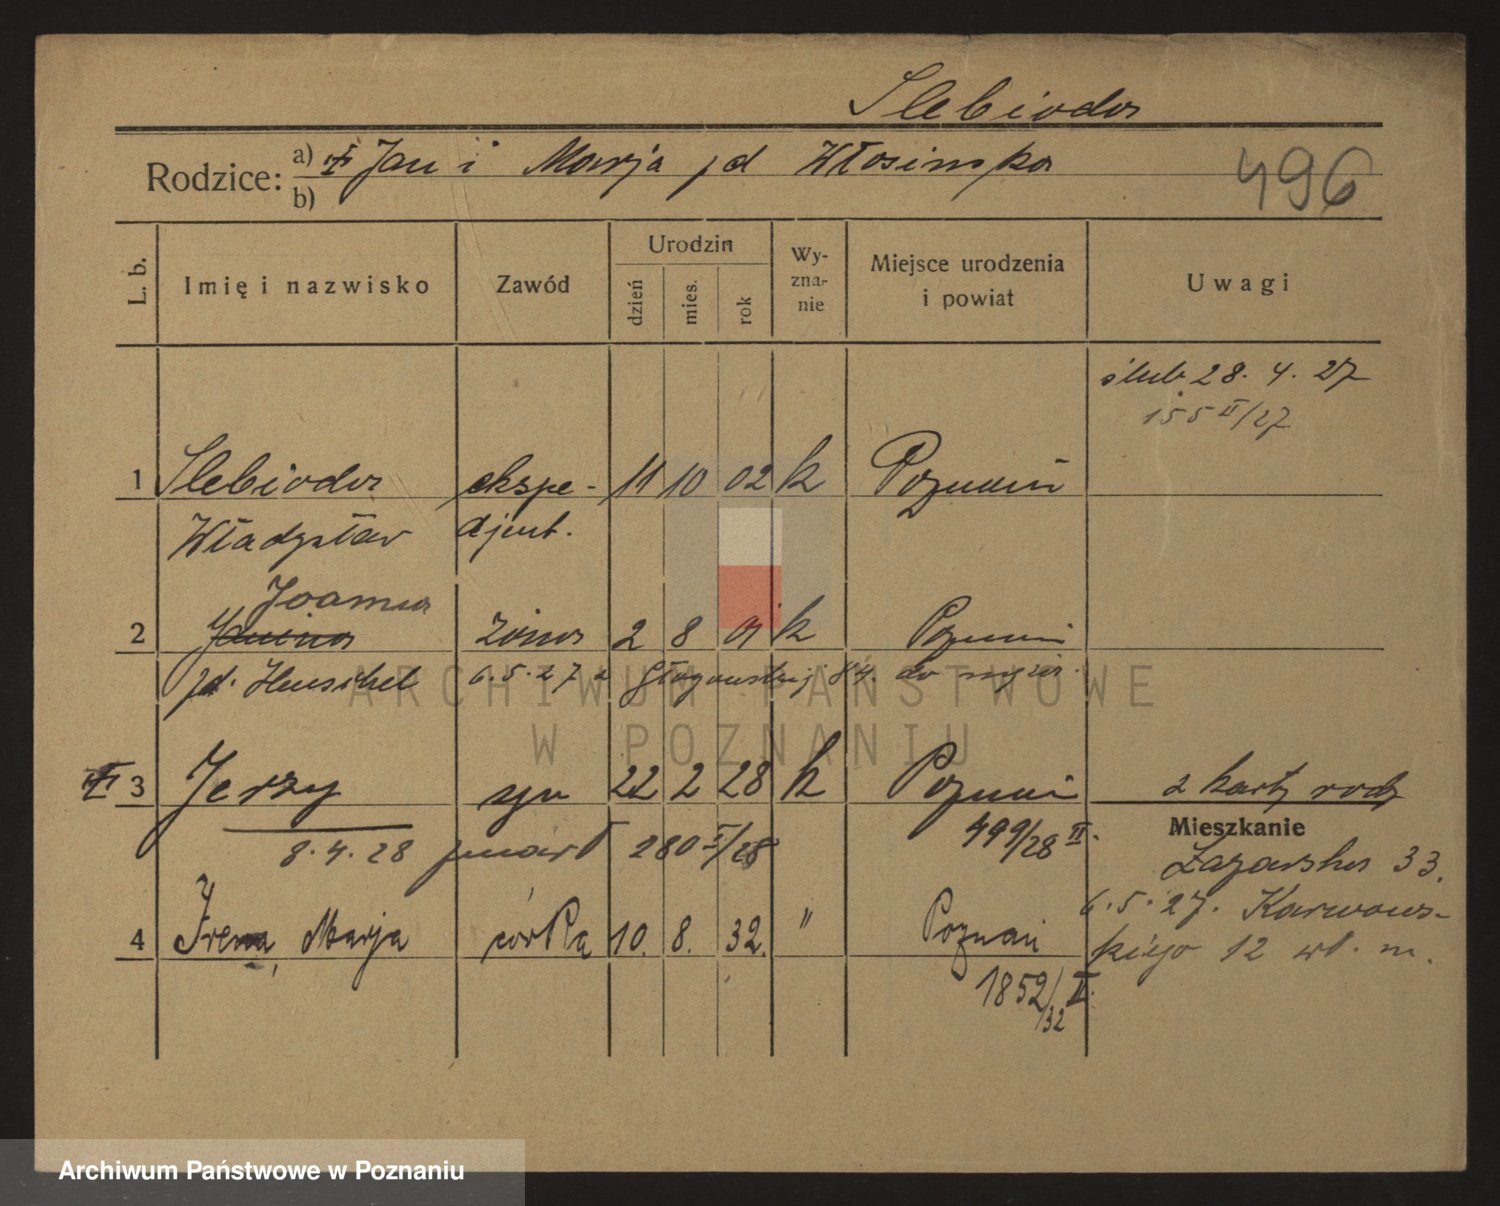 Slebioda
Rodzice: a) Jan i Marja zd Włosinska
b)
496
L. b. Imię i nazwisko Zawód Urodzin dzień mies. rok Wy-zna-nie Miejsce urodzenia i powiat Uwagi
ślub 28. 4. 27
155 II/27
1 Slebioda ekspe- 11 10 02 k Poznań
Władysław djent.
Joanna
2 Janina żona 2 8 01 k Poznań
zd. Henschel 6.5.27 z Głogowskiej 84. do męża.
3 Jerzy syn 22 2 28 k Poznań z karty rodz
8.4.28 zmarł 280 II/28 499/28 II. Mieszkanie
Łazarska 33.
6.5.27. Karwows-
4 Irena, Marja córka 10. 8. 32. " Poznań kiego 12 wł. m.
1852/32 II.
ARCHIWUM PAŃSTWOWE
W POZNANIU
Archiwum Państwowe w Poznaniu